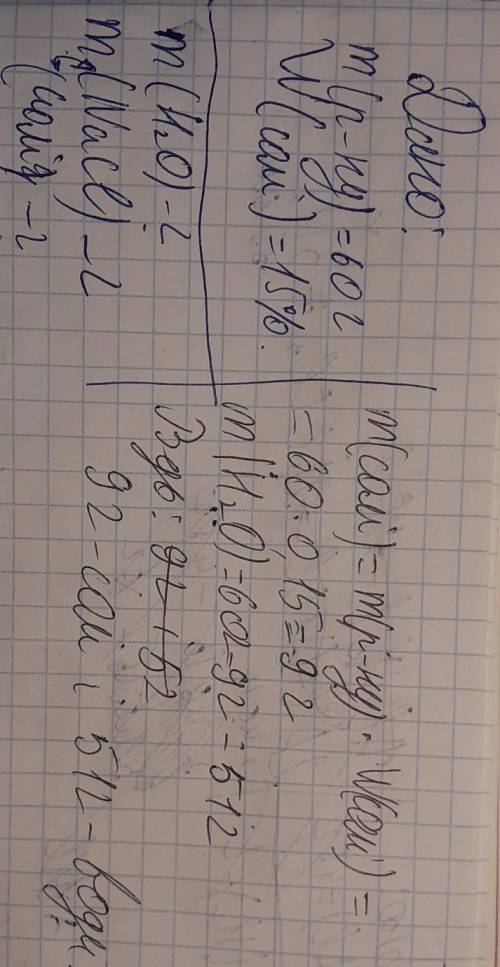 Дано:
m(р-ну) = 60 г
W(солі) = 15%.
m(H₂O) - г
m(NaCl) - г
(солі) - г
m(солі) = m(р-ну) · W(солі) =
= 60 · 0 15 = 9 г
m(H₂O) = 60 - 9г = 51г
Відь: 9г і 5г
9г - солі і 51г - води